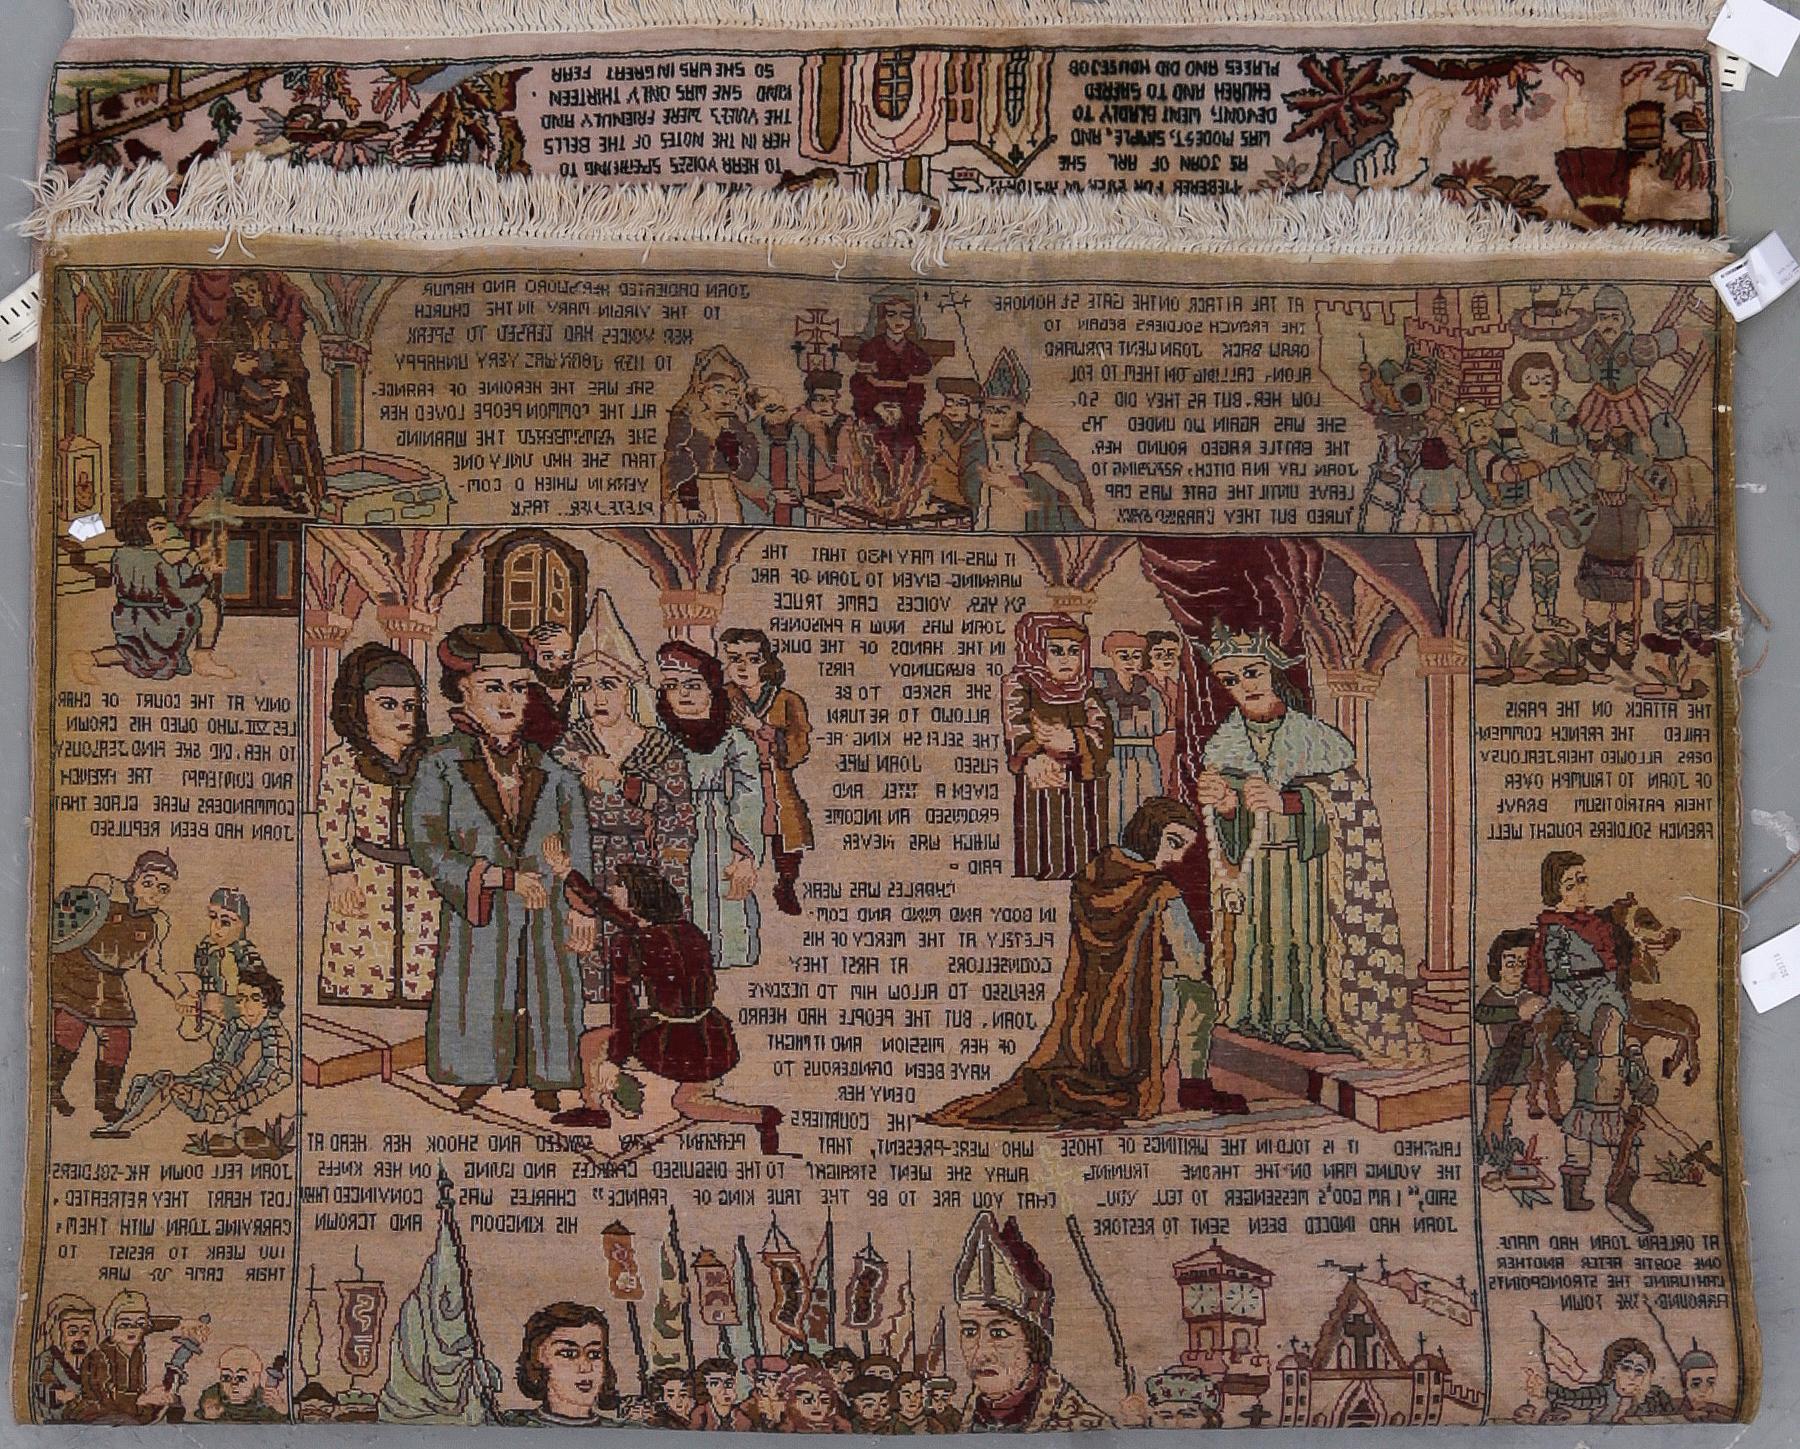 SO SHE WAS IN GREAT FEAR
KIND SHE WAS ONLY THIRTEEN
THE VOICES WERE FRIENDLY AND
HER IN THE NOTES OF THE BELLS
TO HEAR VOICES SPEAKING TO
PLACES AND DID HOUSEJOB
CHURCH AND TO SACRED
DEVOUT, WENT GLADLY TO
WAS MODEST, SIMPLE, AND
AS JOAN OF ARC SHE
FOR EVER IN HISTORY
JOAN DEDICATED HER SWORD AND ARMUR
TO THE VIRGIN MARY IN THE CHURCH
HER VOICES HAD CEASED TO SPEAK
TO HER JOAN WAS VERY UNHAPPY
SHE WAS THE HEROINE OF FRANCE-
ALL THE COMMON PEOPLE LOVED HER
SHE THE WARNING
THAT SHE HAD ONLY ONE
IN WHICH COM-
PLETE TASK
AT THE ATTACK ON THE GATE ST HONORE
THE FRENCH SOLDIERS BEGAN TO
DRAW BACK JOAN WENT FORWARD
ALON- CALLING ON THEM TO FOL
LOW HER. BUT AS THEY DID SO.
SHE WAS AGAIN WOUNDED AS
THE BATTLE RAGED ROUND HER.
JOAN LAY IN A DITCH, REFUSING TO
LEAVE UNTIL THE GATE WAS CAP
TURED BUT THEY CARRIED BACK
IT WAS-IN MAY 1430 THAT THE
WARNING- GIVEN TO JOAN-OF ARC
BY HER VOICES CAME TRUCE
JOAN WAS NOW A PRISONER
IN THE HANDS OF THE DUKE
OF BURGUNDY FIRST
SHE ASKED TO BE
ALLOWD TO RETURN
THE SELFISH KING RE-
FUSED JOAN WAS
GIVEN A TITEL AND
PROMISED AN INCOME
WHICH WAS NEVER
PAID -
CHARLES WAS WEAK
IN BODY AND MIND AND COM-
PLETELY AT THE MERCY OF HIS
COUNSELLORS AT FIRST THEY
REFUSED TO ALLOW HIM TO RECEIVE
JOAN, BUT THE PEOPLE HAD HEARD
OF HER MISSION AND IT MIGHT
HAVE BEEN DANGEROUS TO
DENY HER
THE COURTIERS
LAUGHED IT IS TOLD IN THE WRITINGS OF THOSE WHO WERE-PRESENT, THAT SMILED AND SHOOK HER HEAD AT
THE YOUNG MAN ON THE THRONE TRUNING AWAY SHE WENT STRAIGHT TO THE DISGUISED CHARLES AND GOING ON HER KNEES
SAID, "I AM GOD'S MESSENGER TO TELL YOU- THAT YOU ARE TO BE THE TRUE KING OF FRANCE" CHARLES WAS CONVINCED THAT
JOAN HAD INDEED BEEN SENT TO RESTORE HIS KINGDOM AND TCROWN
ONLY AT THE COURT OF CHAR
LES VII, WHO OWED HIS CROWN
TO HER, DID SHE FIND JEALOUSY
AND CONTEMPT THE FRENCH
COMMANDERS WERE GLADE THAT
JOAN HAD BEEN REPULSED
THE ATTACK ON THE PARIS
FAILED THE FRENCH COMMEN
DERS ALLOWED THEIR JEALOUSY
OF JOAN TO TRIUMPH OVER
THEIR PATRIOTISUM BRAVE
FRENCH SOLDIERS FOUGHT WELL
JOAN FELL DOWN HE-SOLDIERS
LOST HEART THEY RETREATED,
CARRYING JOAN WITH THEM,
TOO WEAK TO RESIST TO
THEIR CAMP WAR
AT ORLEAN JOAN HAD MADE
ONE SORTIE AFTER ANOTHER
CAPTURING THE STRONGPOINTS
ARROUND THE TOWN